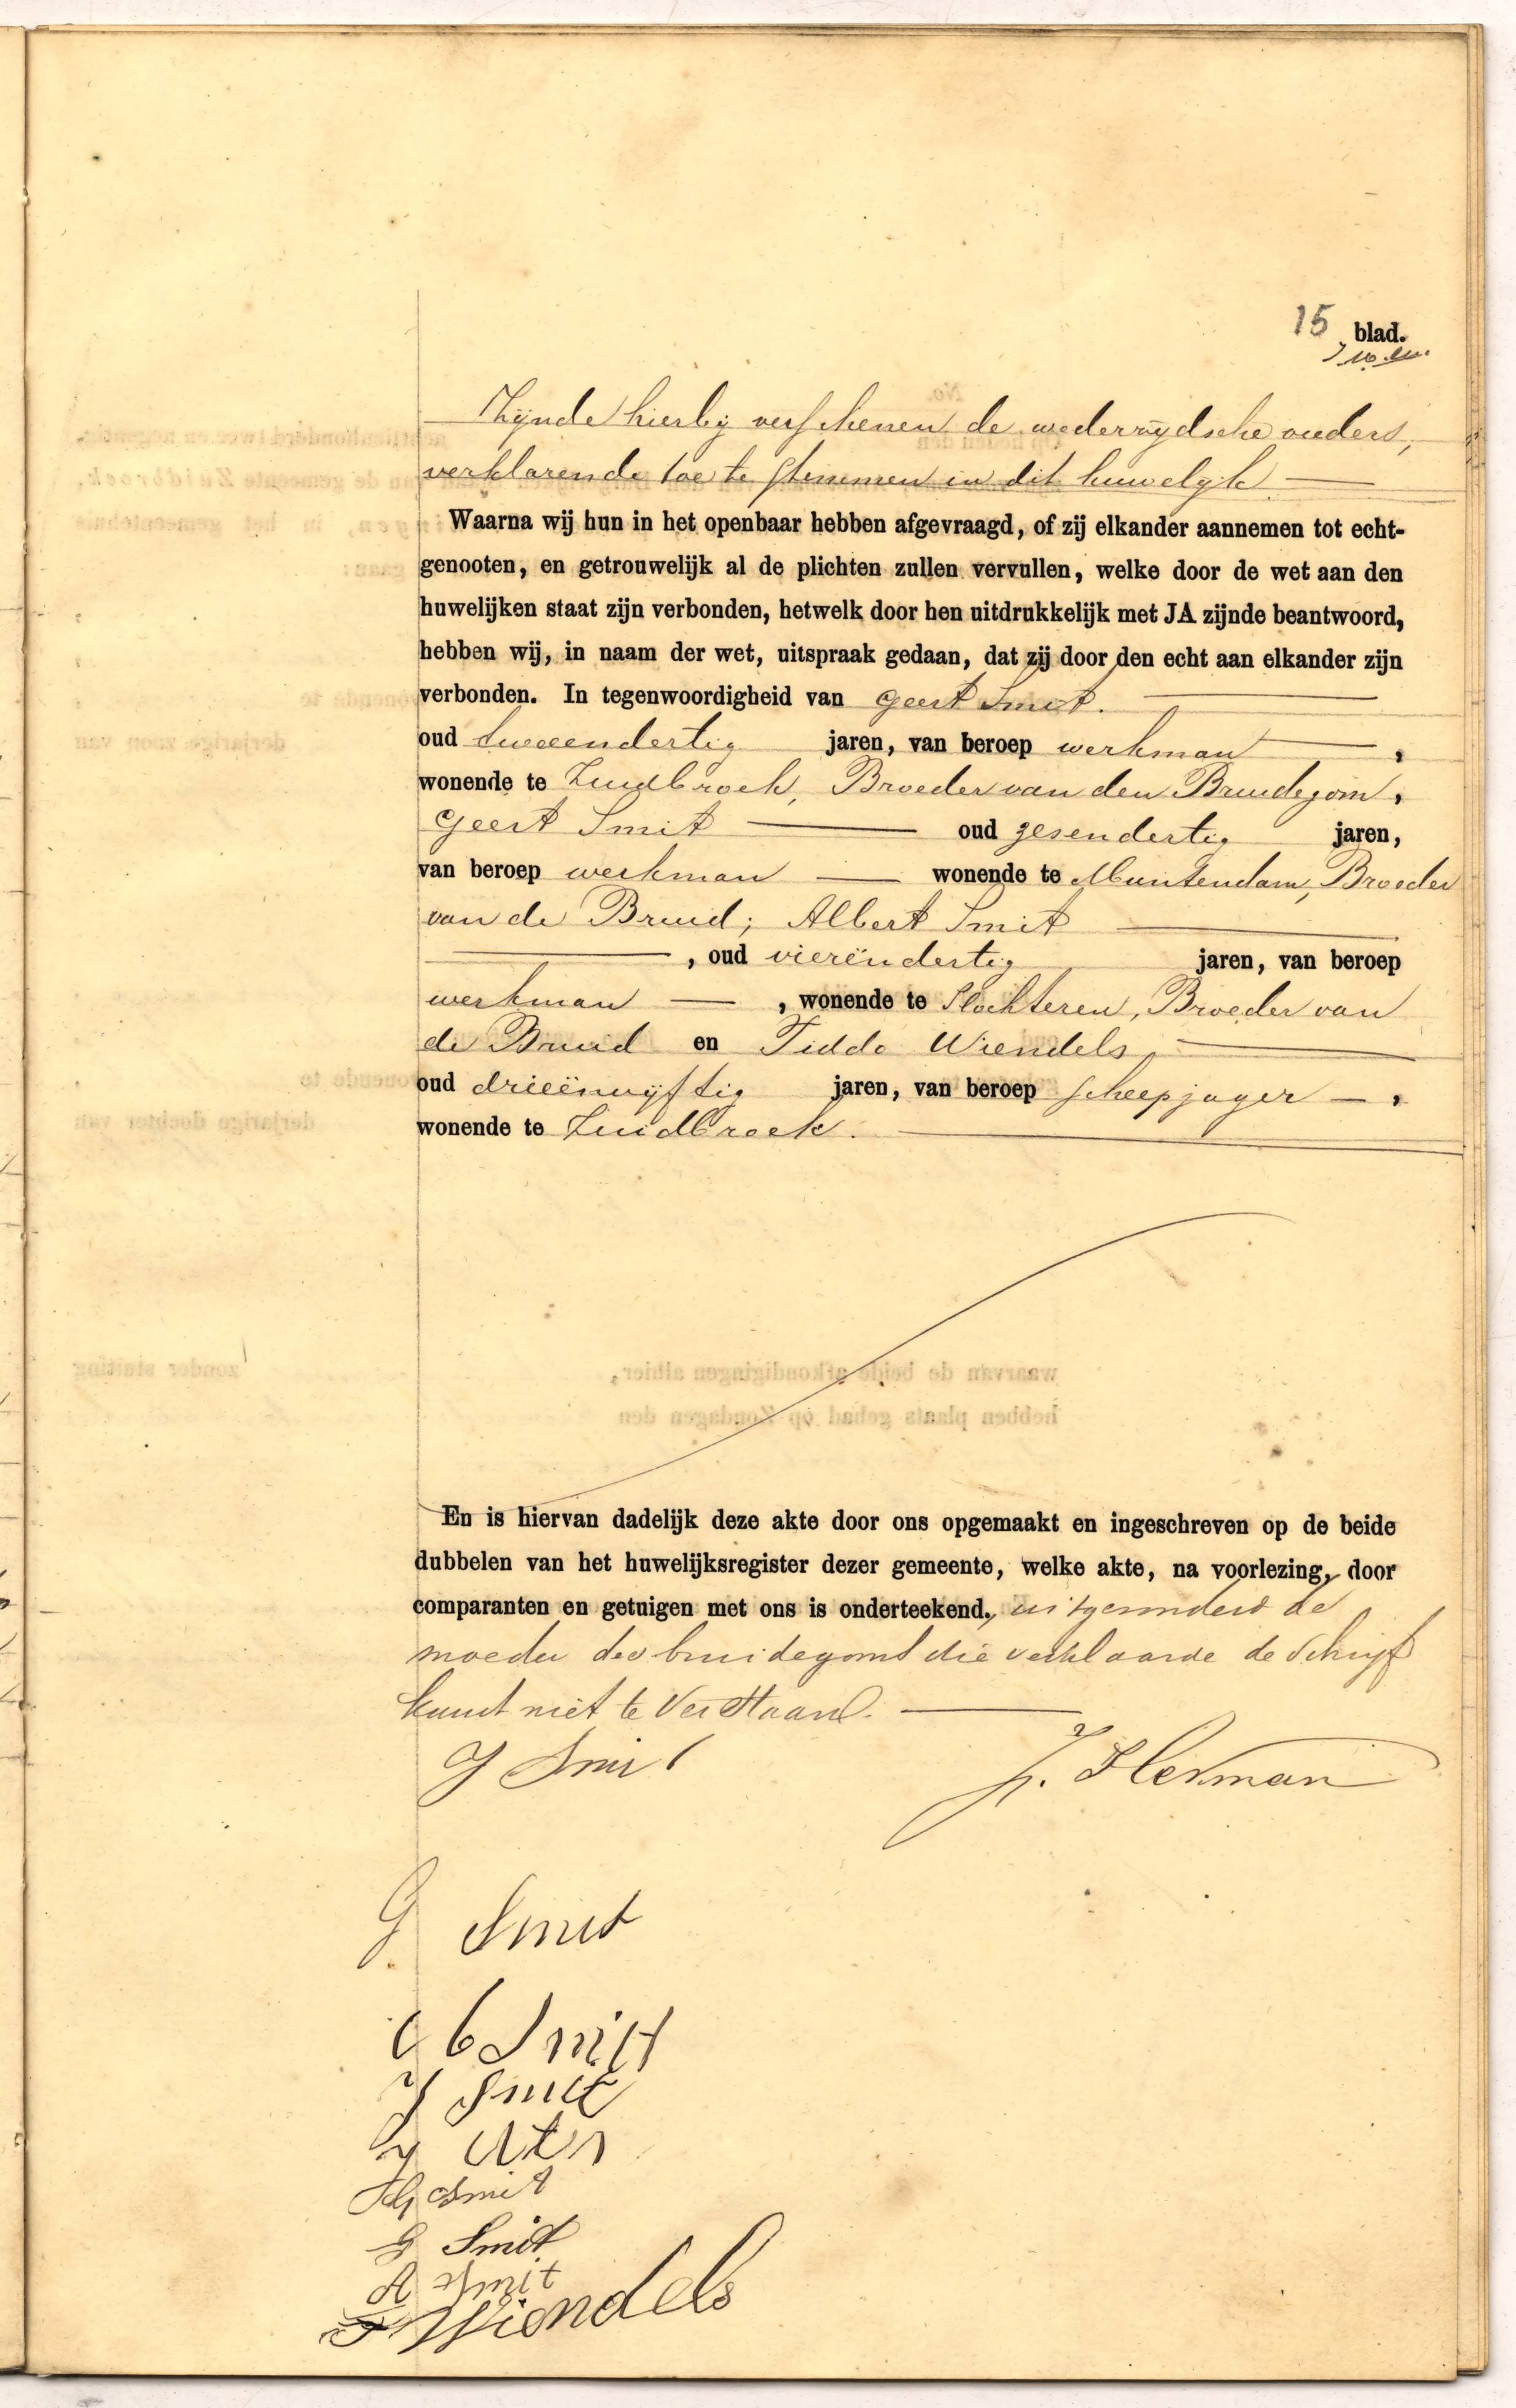 15 blad.
Zijnde hierbij verschenen de wederzijdsche ouders,
verklarende toe te stemmen in dit huwelijk
Waarna wij hun in het openbaar hebben afgevraagd, of zij elkander aannemen tot echt-
genooten, en getrouwelijk al de plichten zullen vervullen, welke door de wet aan den
huwelijken staat zijn verbonden, hetwelk door hen uitdrukkelijk met JA zijnde beantwoord,
hebben wij, in naam der wet, uitspraak gedaan, dat zij door den echt aan elkander zijn
verbonden. In tegenwoordigheid van Geert Smit.
oud tweeendertig jaren, van beroep werkman ,
wonende te Zuidbroek, Broeder van den Bruidegom,
Geert Smit oud zesendertig jaren,
van beroep werkman wonende te Muntendam, Broeder
van de Bruid; Albert Smit
, oud vierëndertig jaren, van beroep
werkman , wonende te Slochteren, Broeder van
de Bruid en Tiddo Wiendels,
oud drieënvijftig jaren, van beroep scheepjager ,
wonende te Zuidbroek.
En is hiervan dadelijk deze akte door ons opgemaakt en ingeschreven op de beide
dubbelen van het huwelijksregister dezer gemeente, welke akte, na voorlezing, door
comparanten en getuigen met ons is onderteekend, uitgezonderd de
moeder des bruidegoms die verklaarde de schrijf
kunst niet te Verstaan.
J Smit
G. Smit
Smit
J Smit
Smit
G Smit
A Smit
T Wiendels